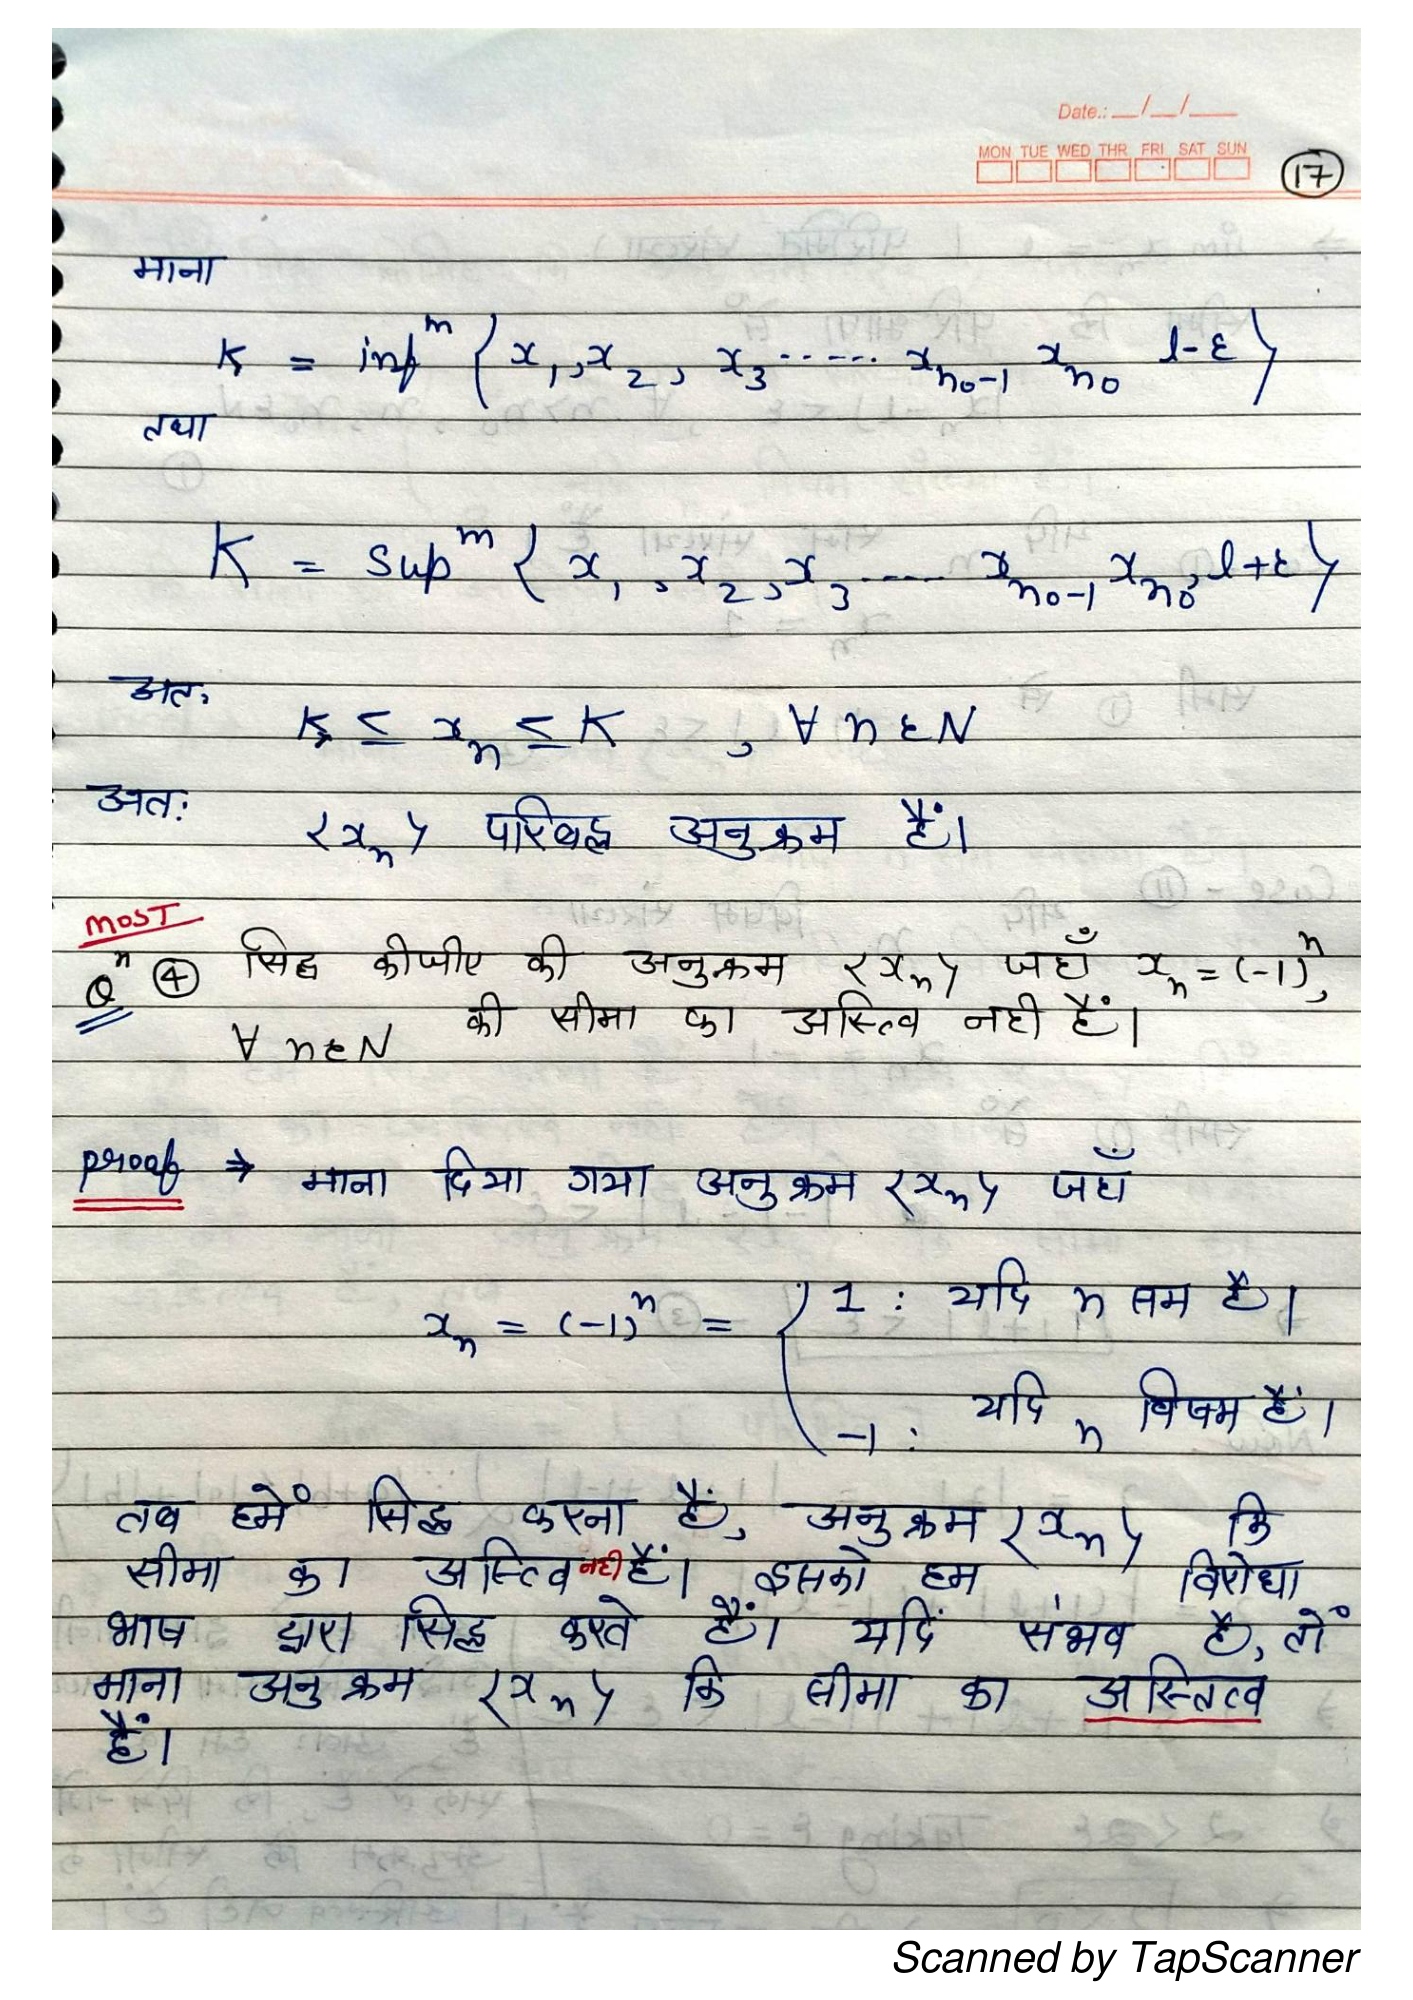 Date.: __/__/____
MON TUE WED THR FRI SAT SUN
17
माना
k = infᵐ { x₁, x₂, x₃ ...... xₙ₀₋₁ xₙ₀ l-ε }
तथा
K = Supᵐ { x₁, x₂, x₃ ..... xₙ₀₋₁, xₙ₀, l+ε }
अतः
k ≤ xₙ ≤ K , ∀ n ε N
अतः
<xₙ> परिबद्ध अनुक्रम हैं।
MOST
Qⁿ ④ सिद्ध कीजीए की अनुक्रम <xₙ> जहाँ xₙ = (-1)ⁿ,
∀ n ε N की सीमा का अस्तित्व नही हैं।
Proof ⇒ माना दिया गया अनुक्रम <xₙ> जहाँ
xₙ = (-1)ⁿ = { 1 : यदि n सम है।
-1 : यदि n विषम हैं।
तब हमें सिद्ध करना हैं, अनुक्रम <xₙ> कि
सीमा का अस्तित्व नही हैं। इसको हम विरोधा
भाष द्वारा सिद्ध करते हैं। यदि संभव है, तों
माना अनुक्रम <xₙ> कि सीमा का अस्तित्व
हैं।
Scanned by TapScanner